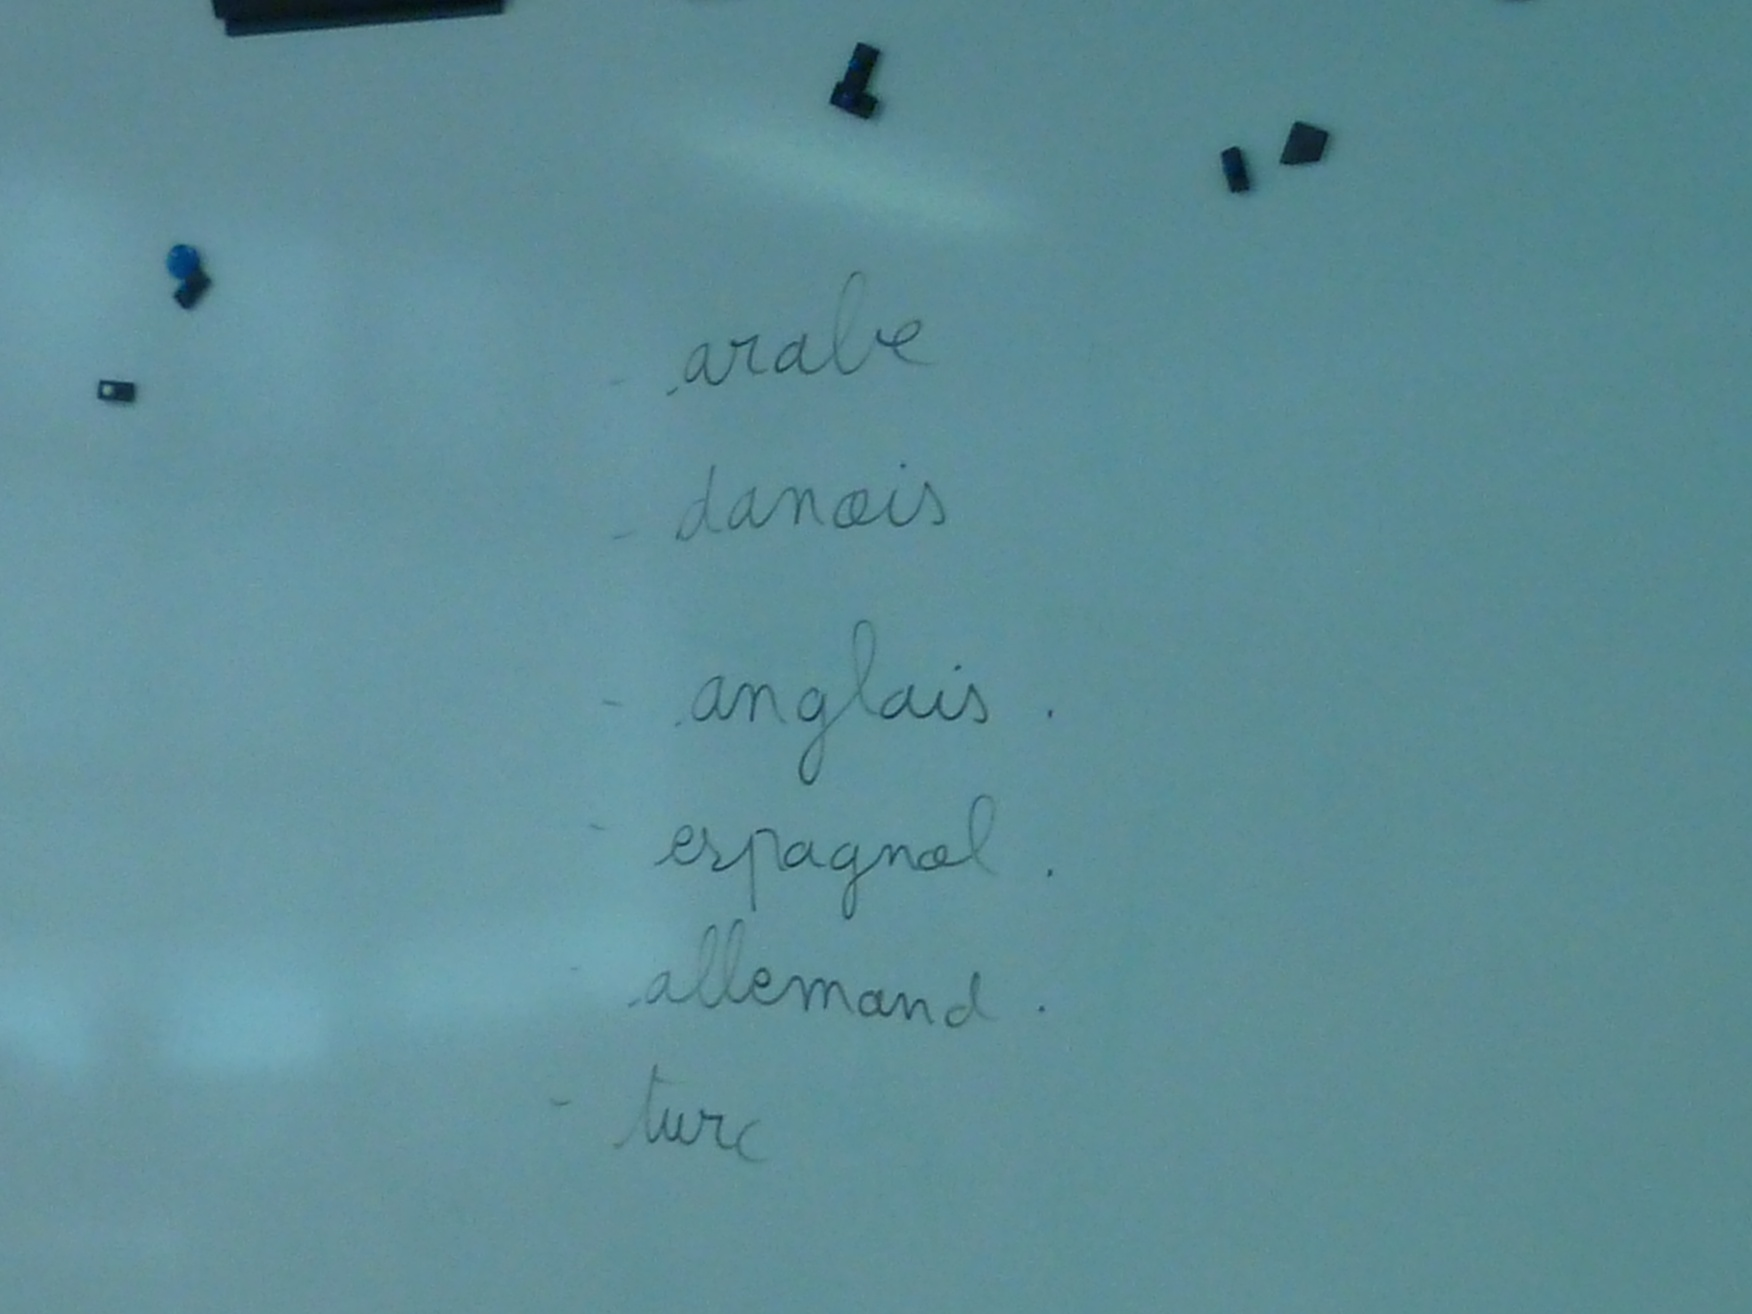 - arabe
- danois
- anglais .
- espagnol .
- allemand .
- turc